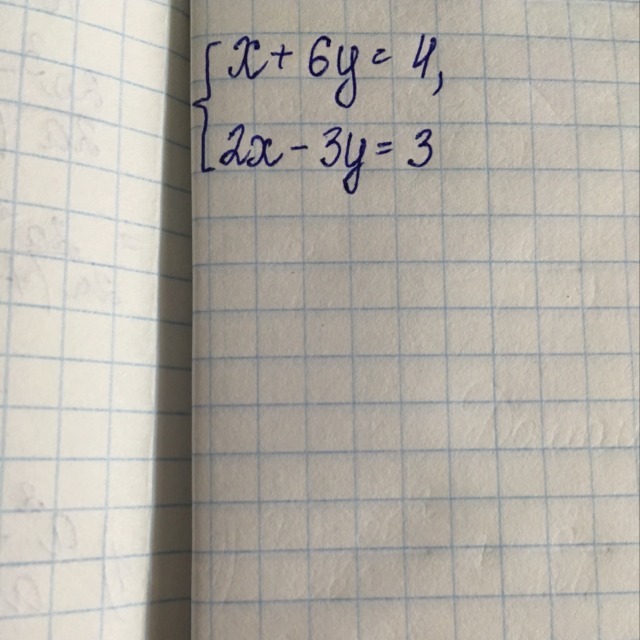 x + 6y = 4,
2x - 3y = 3